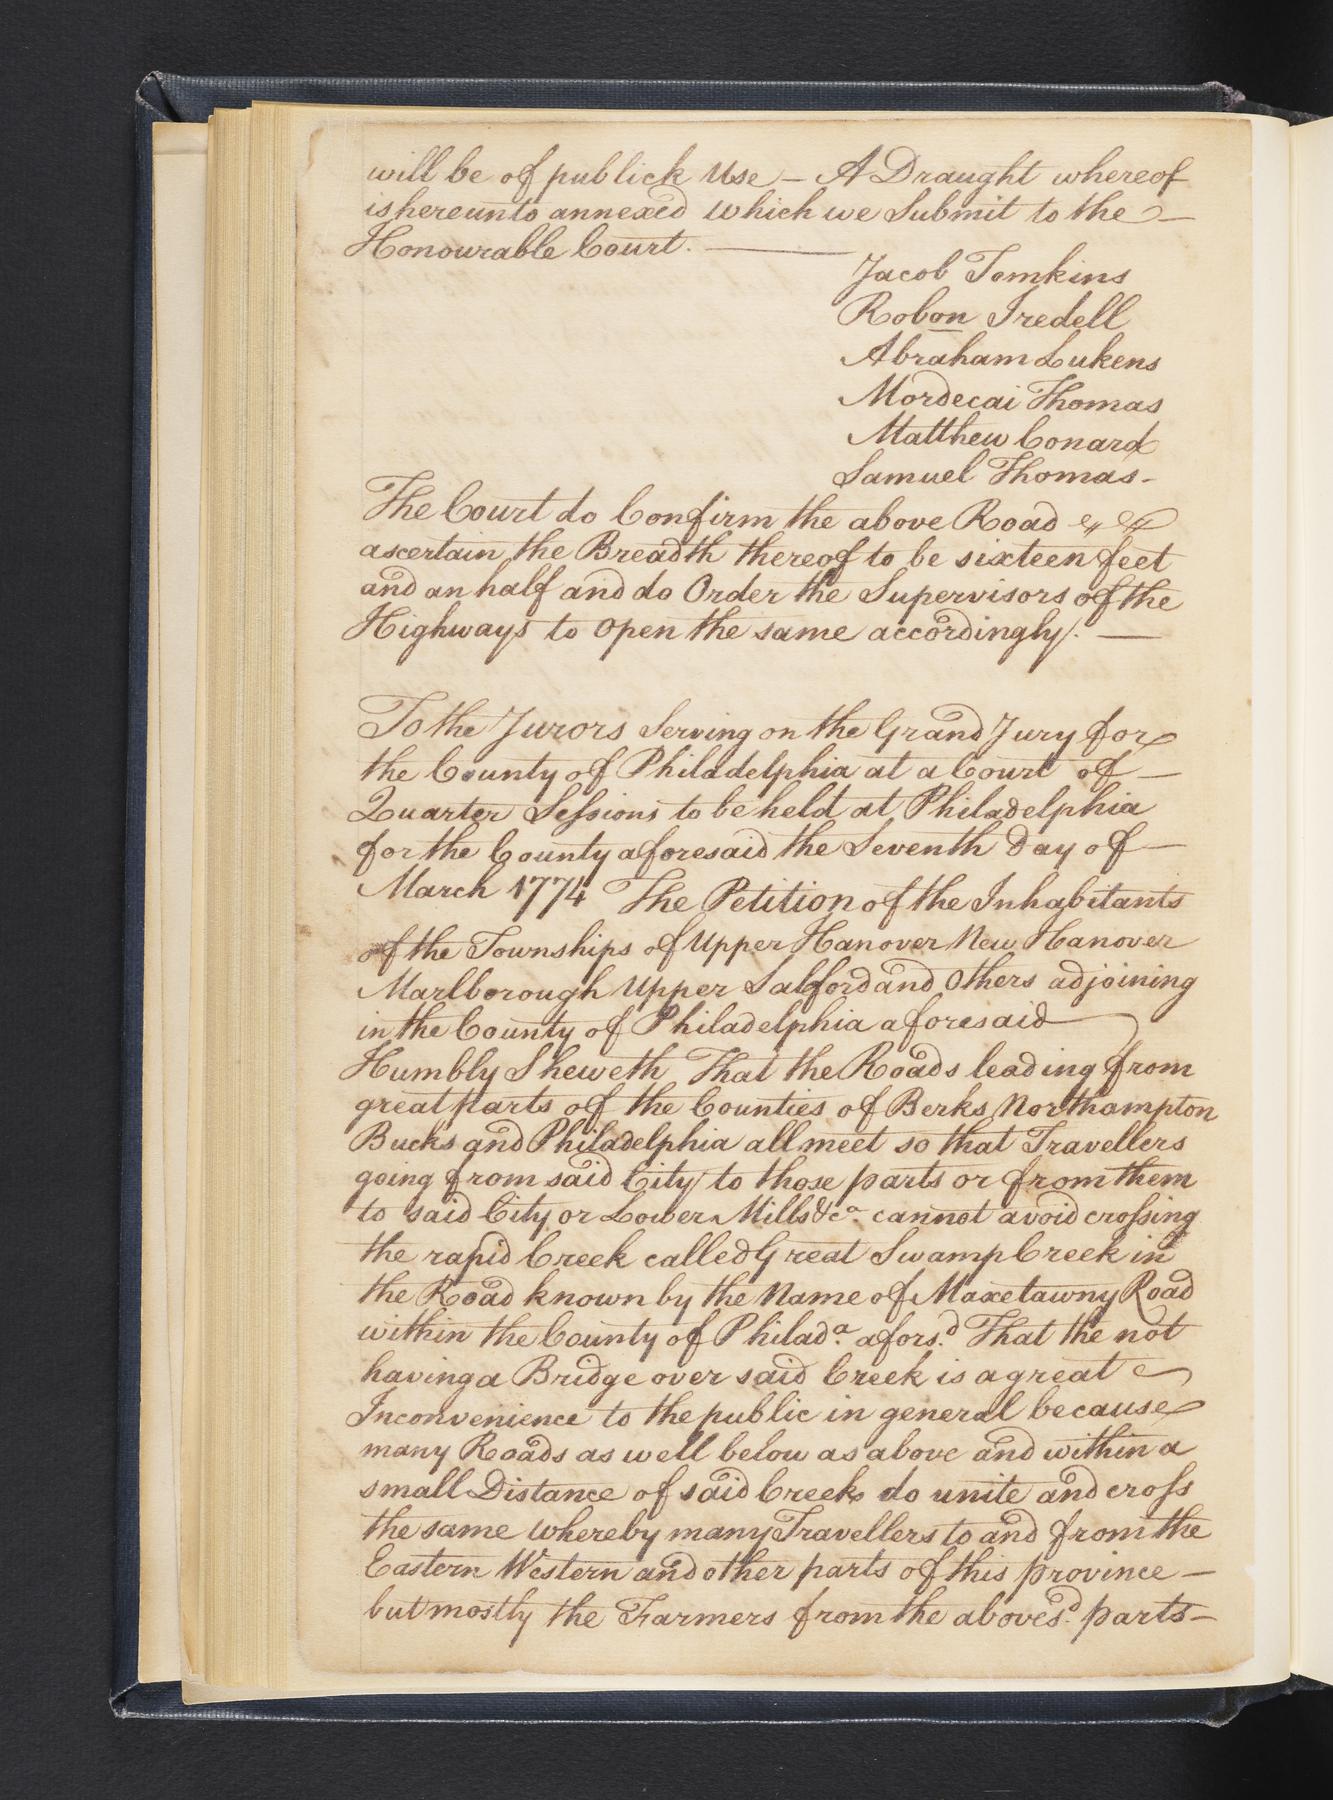 will be of publick Use — A Draught whereof
is hereunto annexed which we Submit to the —
Honourable Court. —
Jacob Tomkins
Robon Iredell
Abraham Lukens
Mordecai Thomas
Matthew Conard
Samuel Thomas -
The Court do Confirm the above Road &
ascertain the Breadth thereof to be sixteen feet
and an half and do Order the Supervisors of the
Highways to open the same accordingly. —
To the Jurors Serving on the Grand Jury for
the County of Philadelphia at a Court of —
Quarter Sessions to be held at Philadelphia
for the County aforesaid the Seventh Day of —
March 1774 The Petition of the Inhabitants
of the Townships of Upper Hanover New Hanover
Marlborough Upper Salford and Others adjoining
in the County of Philadelphia aforesaid —
Humbly Sheweth That the Roads leading from
great parts of the Counties of Berks Northampton
Bucks and Philadelphia all meet so that Travellers
going from said City to those parts or from them
to said City or Lower Mills &ca. cannot avoid crossing
the rapid Creek called Great Swamp Creek in
the Road known by the Name of Maxetawny Road
within the County of Philada. afors.d That the not
having a Bridge over said Creek is a great
Inconvenience to the public in general because
many Roads as well below as above and within a
small Distance of said Creek do unite and cross
the same whereby many Travellers to and from the
Eastern Western and other parts of this province —
but mostly the Farmers from the aboves.d parts —